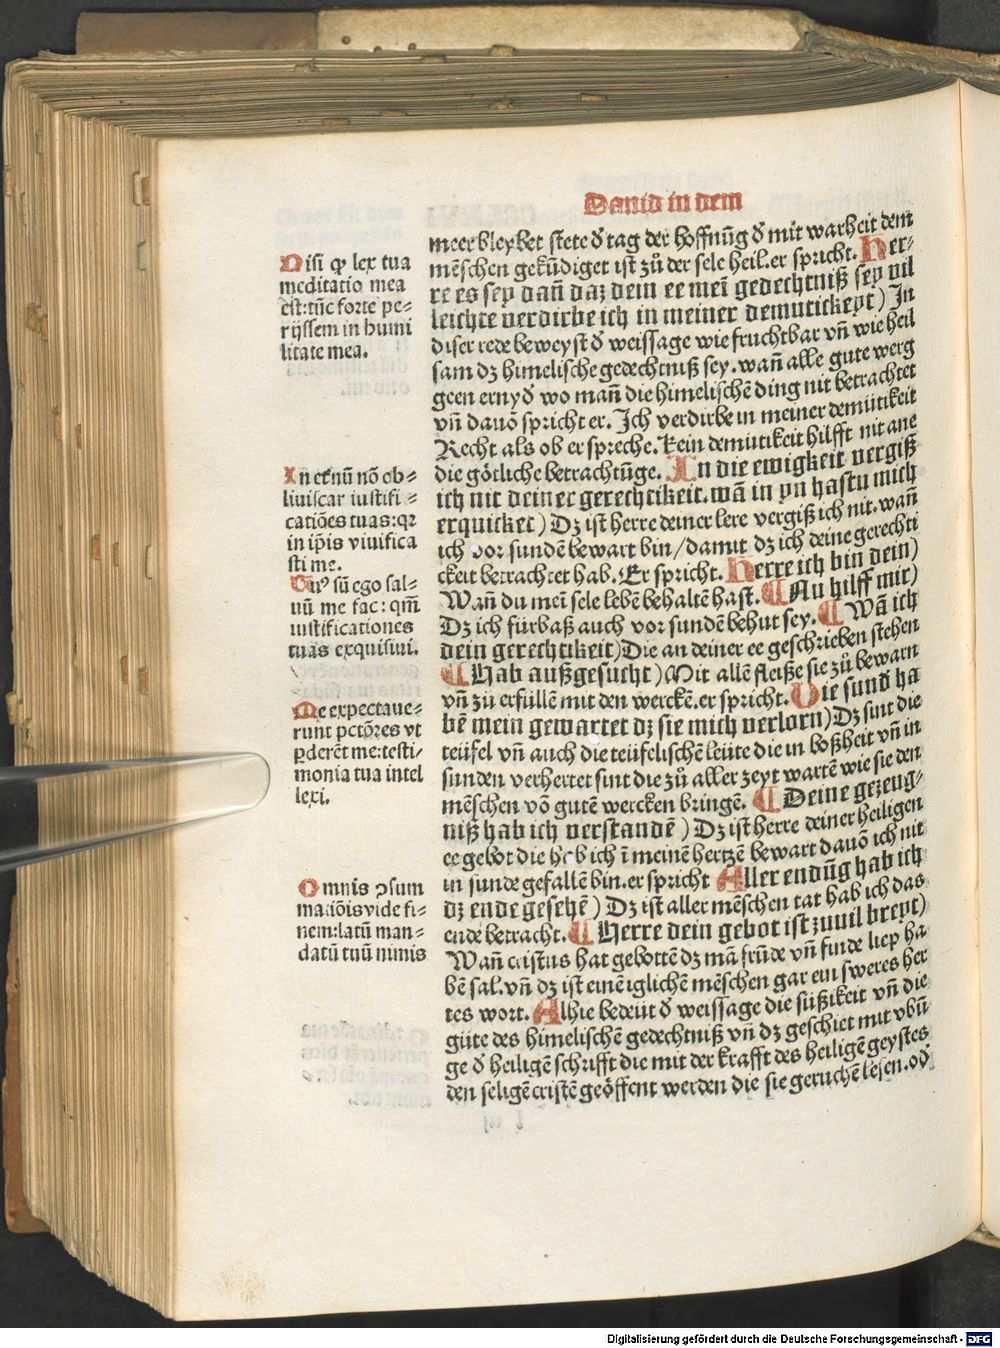 Dauid in dem
Nisi qꝫ lex tua
meditatio mea
est:tūc forte pe⸗
rijssem in humi
litate mea.
In et̄nū nō ob⸗
liuiscar iustifi⸗
catiōes tuas:qꝛ
in ip̄is viuifica
sti me.
Tuꝰ sū ego sal⸗
uū me fac: qm̄
iustificationes
tuas exquisiui.
Me expectaue⸗
runt pctōres vt
ꝑderēt me:testi⸗
monia tua intel
lexi.
Omnis ↄsum
matiōis vide fi⸗
nem:latū man⸗
datū tuū nimis
meer bleybet stete d̓ tag der hoffnūg d̓ mit warheit dem
mēschen gekūdiget ist zů der sele heil.er spricht. Her⸗
re es sey dañ daz dein ee meī gedechtniß sey vil
leichte verdirbe ich in meiner demutickeyt) In
diser rede beweyst d̓ weissage wie fruchtbar vñ wie heil
sam dz himelische gedechtniß sey.wañ alle gute werg
geen ernyd̓ wo mañ die himelischē ding nit betrachtet
vñ dauō spricht er. Ich verdirbe in meiner demütikeit
Recht als ob er spreche. kein demutikeit hilfft nit ane
die götliche betrachtūge. In die ewigkeit vergiß
ich nit deiner gerechtikeit.wā in yn hastu mich
erquicket) Dz ist herre deiner lere vergiß ich nit.wañ
ich vor sundē bewart bin/damit dz ich deine gerechti
ckeit betrachtet hab. Er spricht. Herre ich bin dein)
Wañ du meī sele lebē behaltē hast. ¶ Nu hilff mir)
Dz ich fürbaß auch vor sundē behut sey. ¶ Wā ich
dein gerechtikeit) Die an deiner ee geschrieben stehen
¶ Hab außgesucht) Mit allē fleiße sie zů bewarn
vñ zů erfüllē mit den werckē.er spricht. Die sund ha
bē mein gewartet dz sie mich verlorn) Dz sint die
teüfel vñ auch die teüfelischē leüte die in boßheit vñ in
sunden verhertet sint die zů aller zeyt wartē wie sie den
mēschen vō gutē wercken bringē. ¶ Deine gezeug⸗
niß hab ich verstandē) Dz ist herre deiner heiligen
ee gebot die hab ich ī meinē hertzē bewart dauō ich nit
in sunde gefallē bin.er spricht Aller endūg hab ich
dz ende gesehē) Dz ist aller mēschen tat hab ich das
ende betracht. ¶ Herre dein gebot ist zuuil breyt)
Wañ cristus hat gebottē dz mā frūde vñ finde liep ha
bē sal.vñ dz ist einē iglichē mēschen gar ein sweres her
tes wort. Alhie bedeüt d̓ weissage die süßikeit vñ die
güte des himelischē gedechtniß vñ dz geschiet mit vbū
ge d̓ heiligē schrifft die mit der krafft des heiligē geystes
den seligē cristē geöffent werden die sie geruchē lesen.od̓
Digitalisierung gefördert durch die Deutsche Forschungsgemeinschaft - DFG